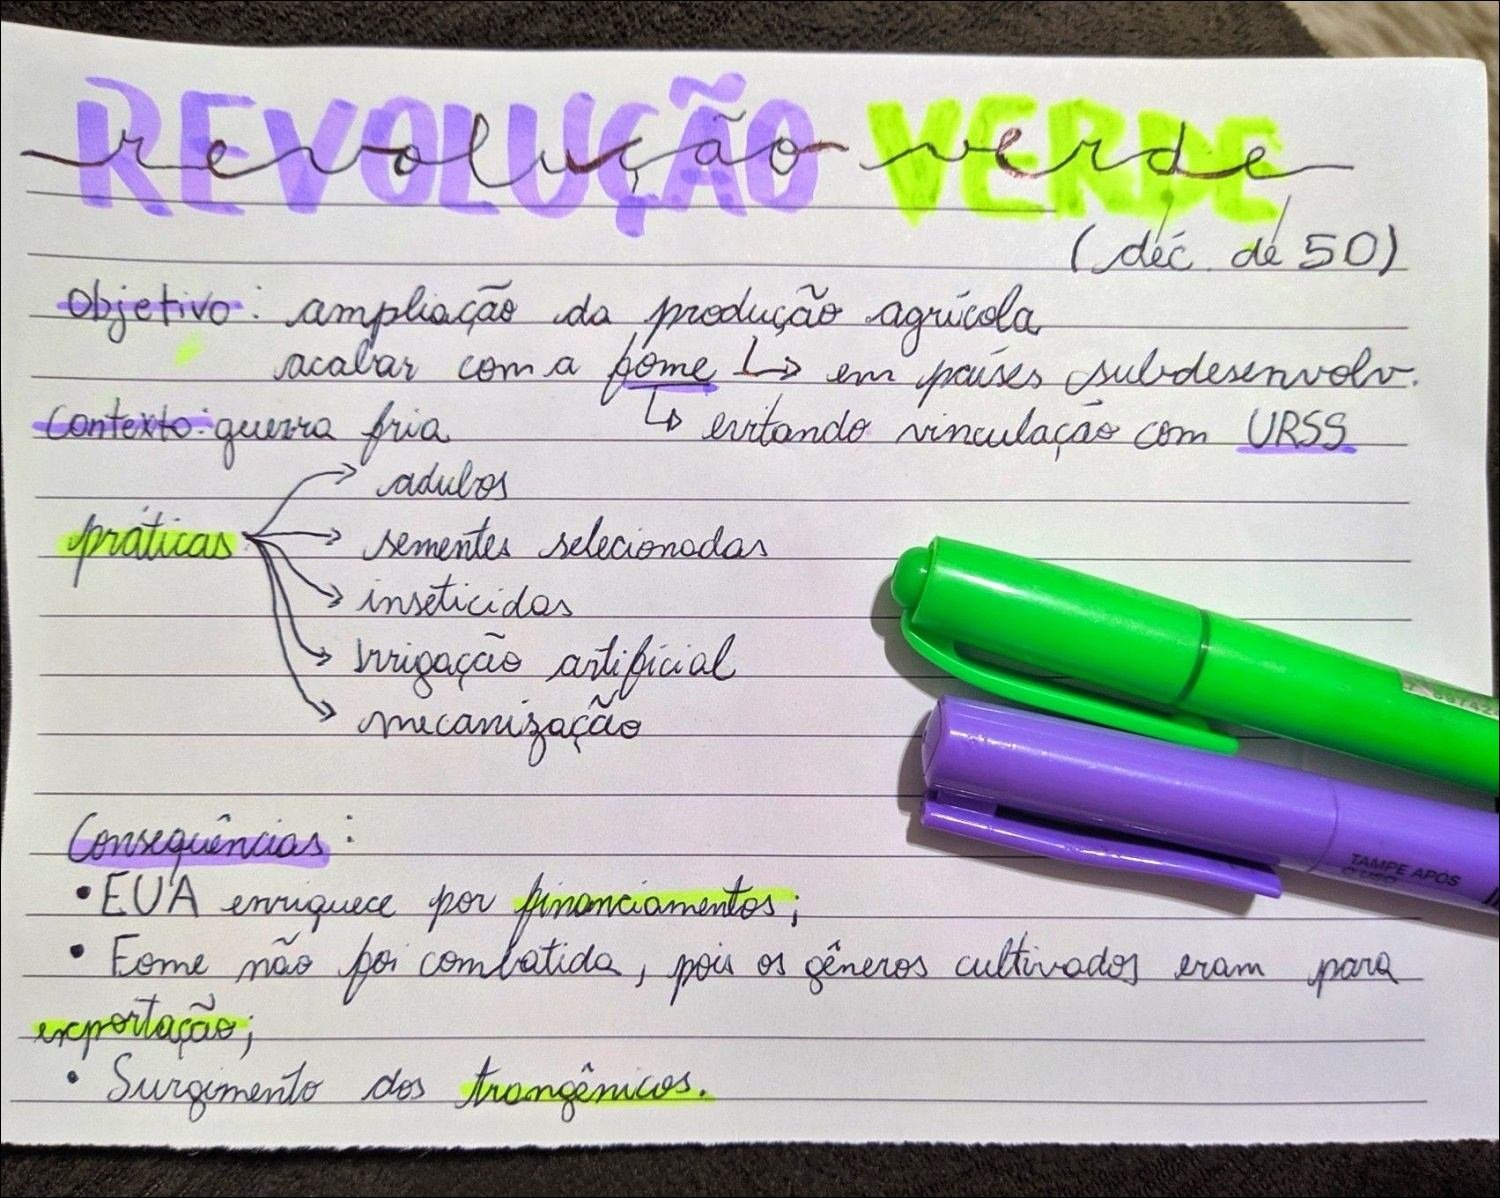 REVOLUÇÃO VERDE
revolução verde
(déc. de 50)
Objetivo: ampliação da produção agrícola
acabar com a fome ↳ em países subdesenvolv.
Contexto: guerra fria ↳ evitando vinculação com URSS
adubos
práticas → sementes selecionadas
inseticidas
Irrigação artificial
mecanização
Consequências:
• EUA enriquece por financiamentos;
• Fome não foi combatida, pois os gêneros cultivados eram para
exportação;
• Surgimento dos trangênicos.
TAMPE APÓS
O USO